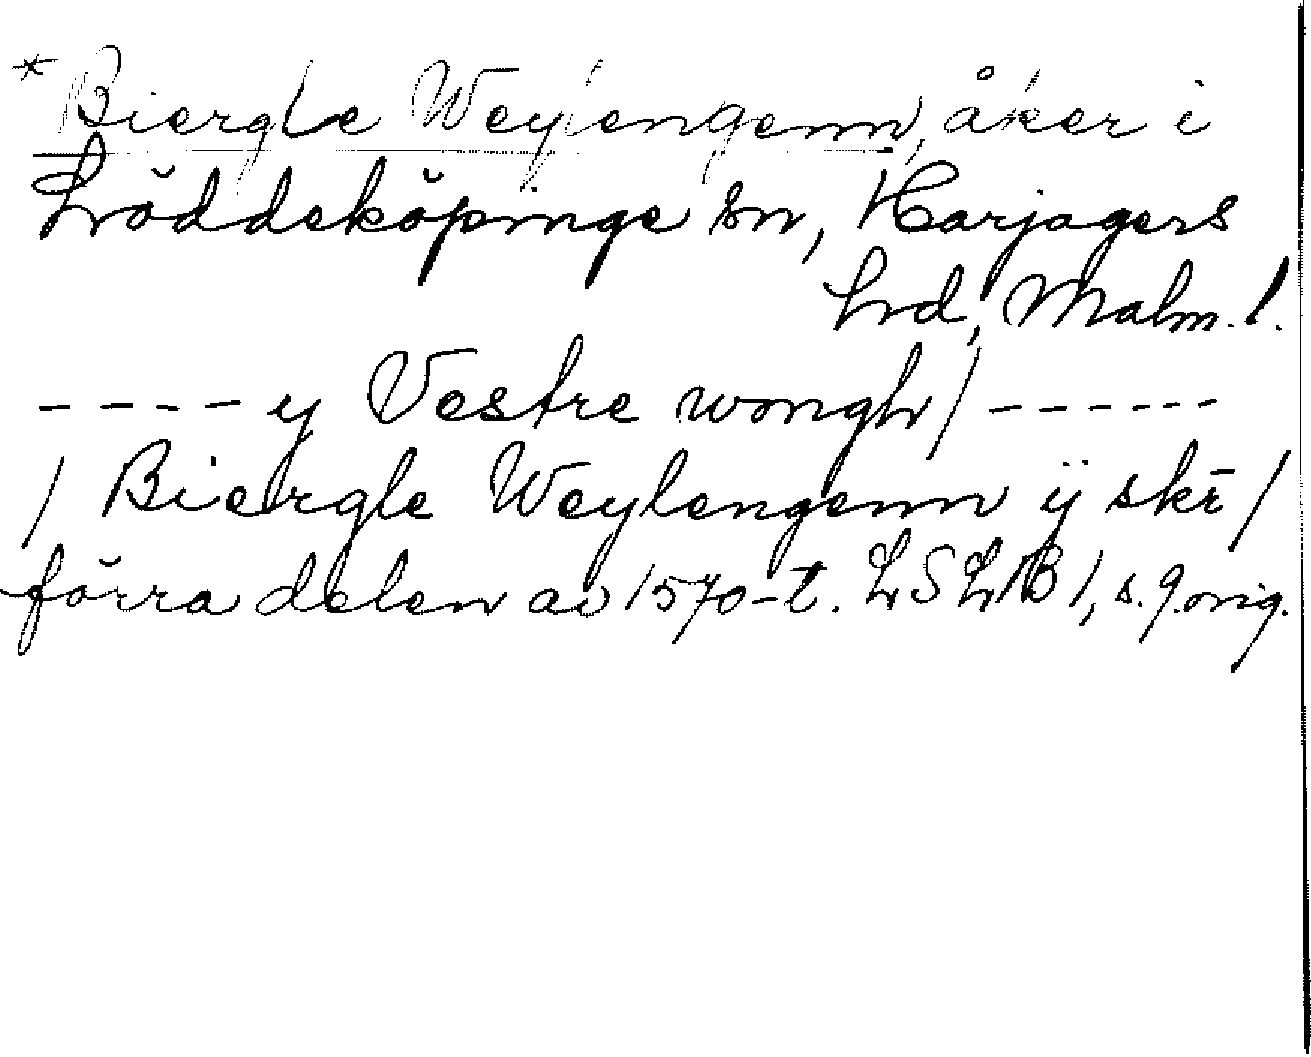 *Biergle Weylengenn, åker i
Löddeköpinge sn, Harjagers
hd, Malm. l.
---- y Vestre wongh/ ------
/ Biergle Weylengenn ÿ skē /
förra delen av 1570-t. LSLB 1, s. 9. orig.